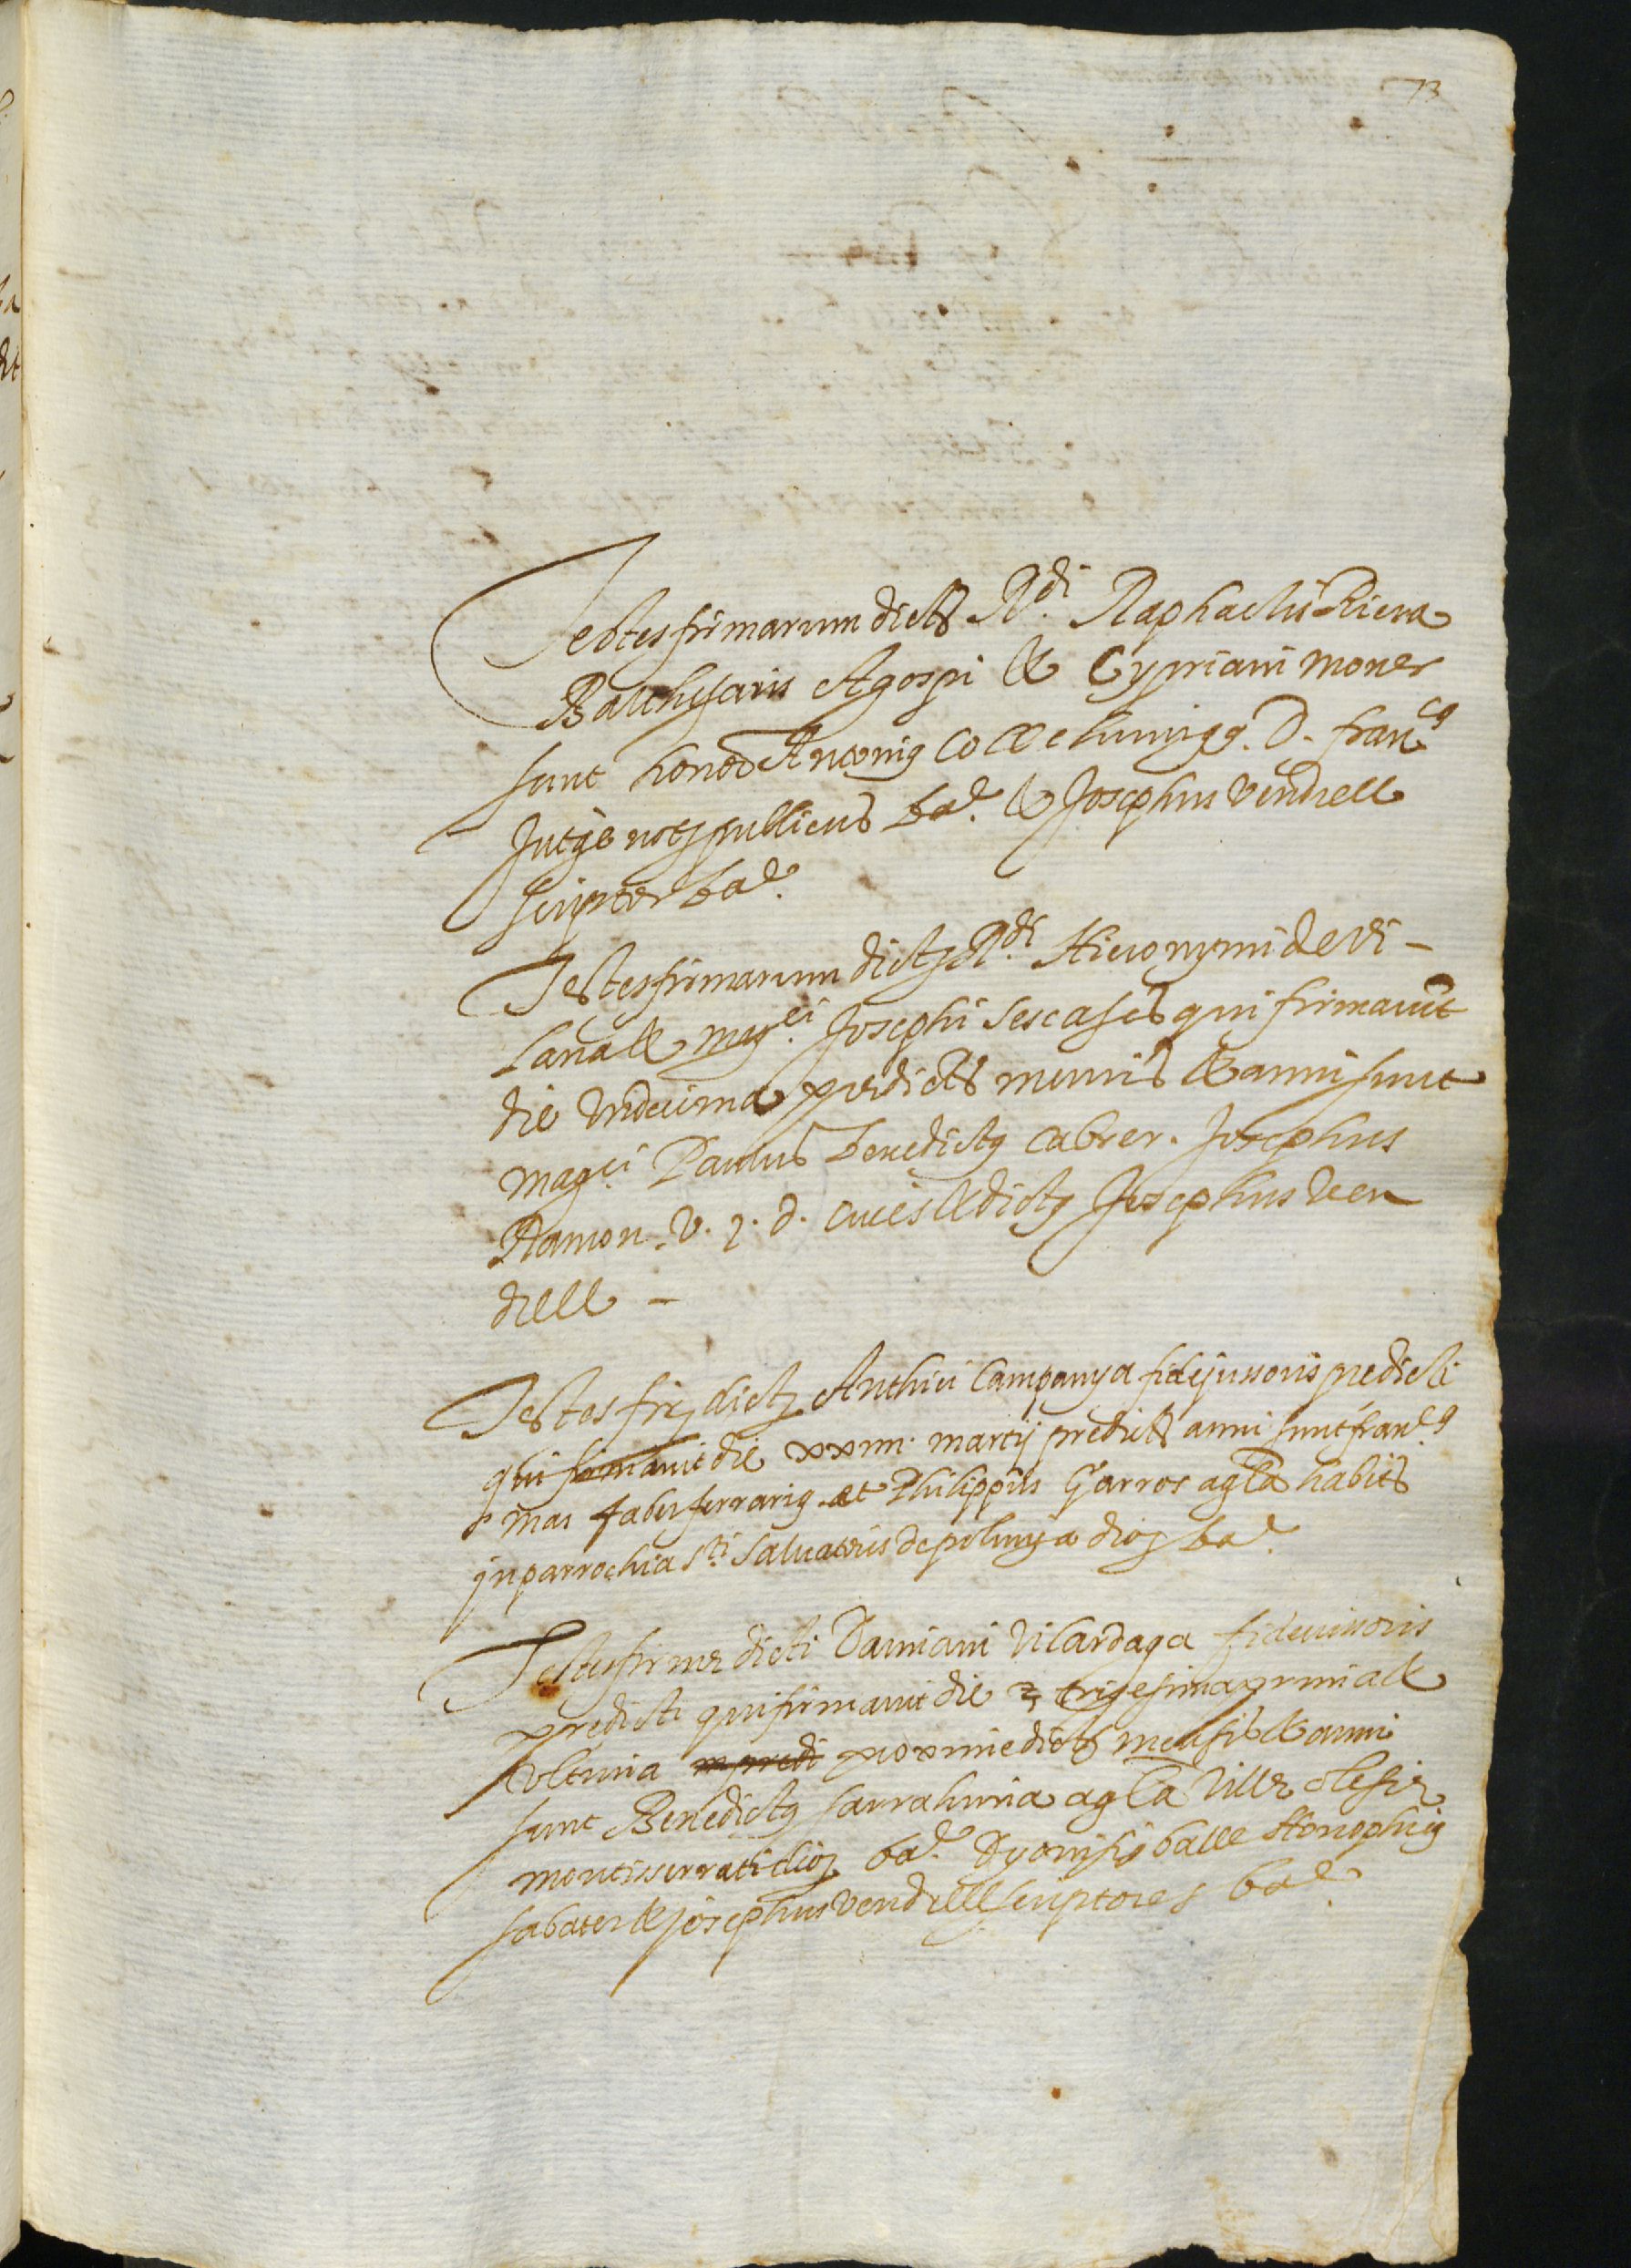 73
Testes firmarum dictʒ Rdi. Raphaelis Riera
Balthesaris Agospi & Cypriani moner
sunt honor Antonius Franc9
Jutge notʒ publicus ba.e & Josephus Vendrell
scriptor bae.
Testes firmarum dictʒ Rdi. Hieronymi de Vi-
lana & magci. Josephi Sescases qui firmavit
die Undecima predictʒ mensis & anni sunt
magci Paulus benedict9 Cabrer. Josephus
Ramon. V. J. D. cives & dict9 Josephus Ven
drell -
Testes firʒ dictʒ Anthici Campanya fidejussoris predicti
qui firmavit die xxiiii. martij predictʒ anni sunt Franc9
mas faber ferrari9 et Philippus Garros agla habits
in parrochia Sti Salvatoris de polinya diog bae.
Testes firme dicti Damiani Vilardaga fideiussoris
predicti qui firmavit die trigesima prima &
ultima in predi proxime dictʒ mensis & anni
sunt Benedict9 Sarrahima agla Ville olesie
montisserrati diog bae. Dyonisi9 balle Honophri9
Sabater & josephus Vendrell scriptores bae.